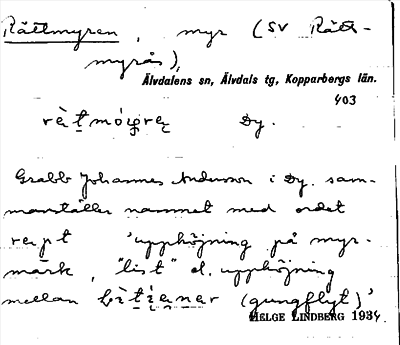 Råttmyren, myr (SV Rått-
myrås),
Älvdalens sn, Älvdals tg, Kopparbergs län.
403
Dy.
Grabb Johannes Andersson i Dy. sam-
manställer namnet med ordet
'upphöjning på myr-
mark, "list" el. upphöjning
mellan (gungflyt)'
HELGE LINDBERG 1934.